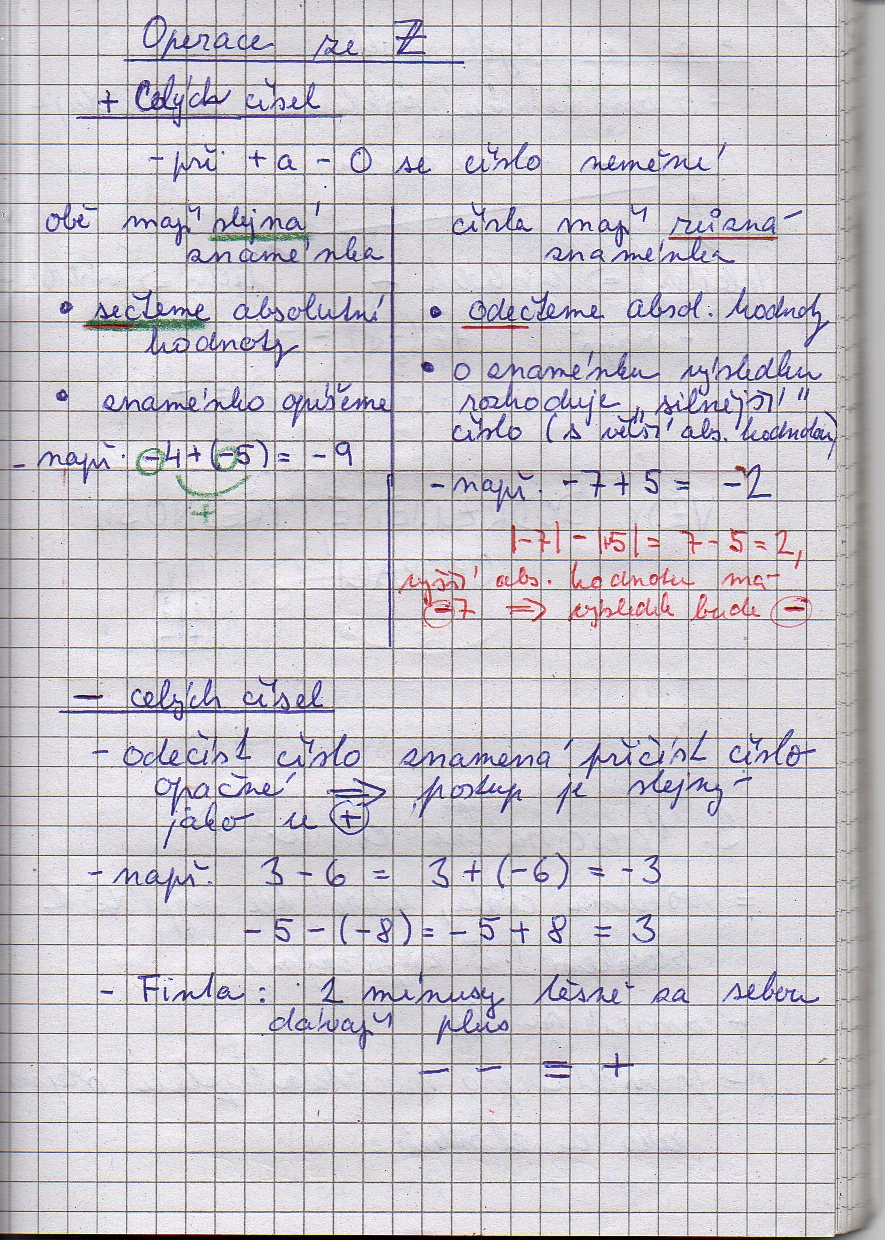 Operace ze Z
+ Celých čísel
- při + a - 0 se číslo nemění
obě mají stejná
znaménka
• sečteme absolutní
hodnoty
• znaménko opíšeme
- např. -4+(-5) = -9
+
čísla mají různá
znaménka
• odečteme absol. hodnoty
• o znaménku výsledku
rozhoduje „silnější"
číslo (s větší abs. hodnotou)
- např. -7+5 = -2
|-7| - |+5| = 7-5 = 2,
vyšší abs. hodnotu má
-7 ⇒ výsledek bude -
- celých čísel
- odečíst číslo znamená přičíst číslo
opačné ⇒ postup je stejný
jako u +
- např. 3-6 = 3+(-6) = -3
-5-(-8) = -5+8 = 3
- Finta: 2 mínusy těsně za sebou
dávají plus
- - = +